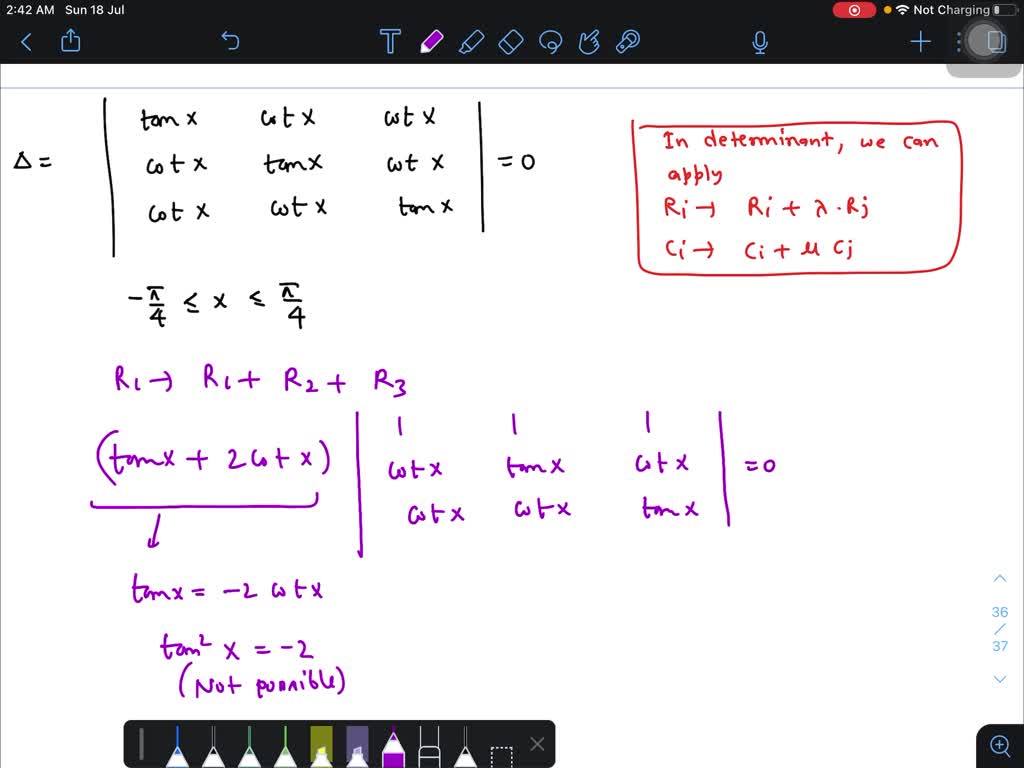 2:42 AM Sun 18 Jul
Not Charging
T
tan x cot x cot x
Δ = cot x tan x cot x = 0
cot x cot x tan x
-π/4 ≤ x ≤ π/4
In determinant, we can
apply
Ri → Ri + λ . Rj
Ci → Ci + μ Cj
R1 → R1 + R2 + R3
1 1 1
(tan x + 2 cot x) cot x tan x cot x = 0
cot x cot x tan x
tan x = -2 cot x
tan² x = -2
(Not possible)
36
/
37